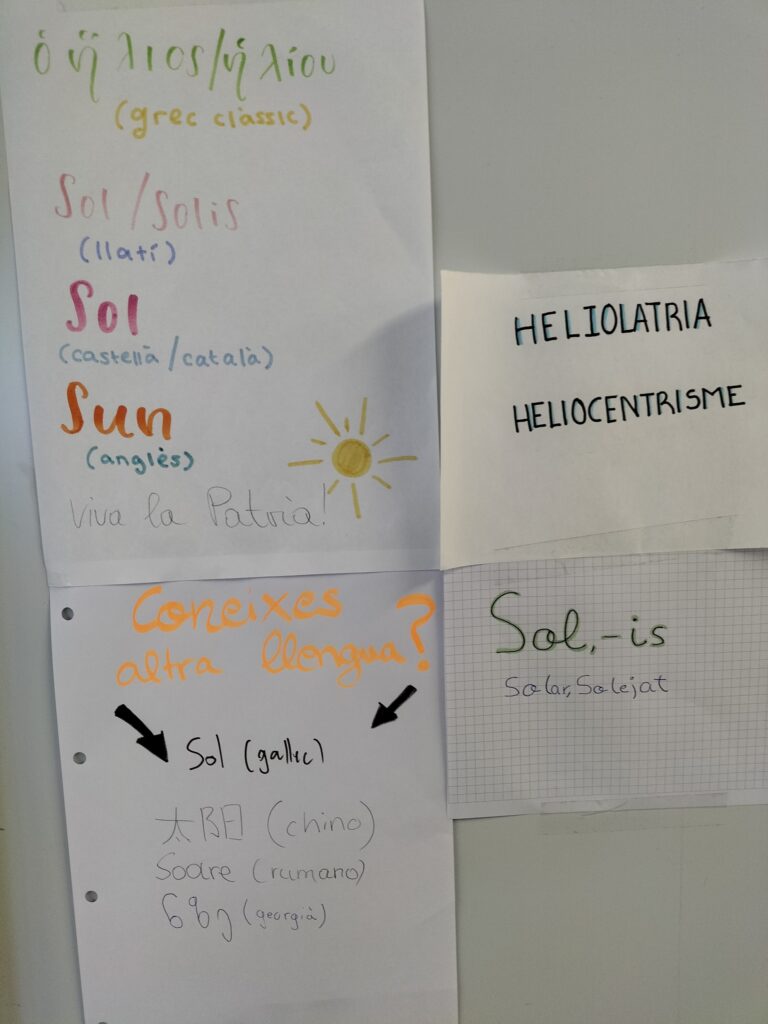 ὁ ἥλιος/ἡλίου
(grec clàssic)
Sol/Solis
(llatí)
Sol
(castellà/català)
Sun
(anglès)
Viva la Patria!
HELIOLATRIA
HELIOCENTRISME
Coneixes
altra llengua?
Sol (gallec)
太阳 (chino)
Soare (rumano)
(georgià)
Sol,-is
Solar, Solejat